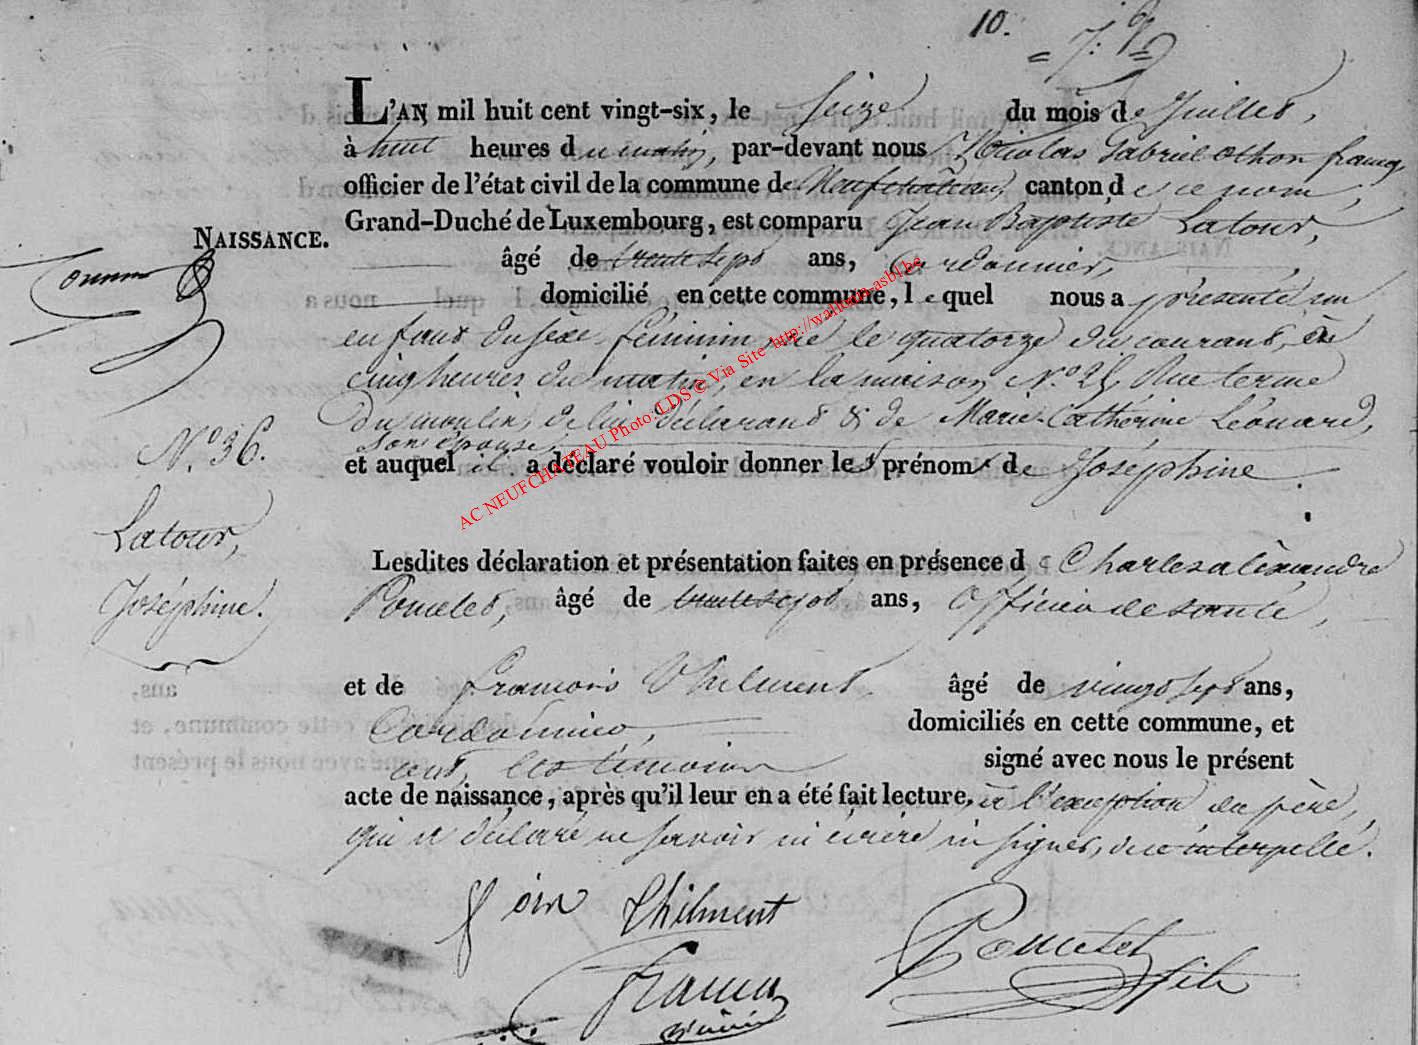 10.
L'AN mil huit cent vingt-six, le seize du mois de Juillet,
à huit heures du matin, par-devant nous Nicolas Gabriel othon francq
officier de l'état civil de la commune de Neufchâteau, canton de ce nom,
Grand-Duché de Luxembourg, est comparu Jean Baptiste Latour,
NAISSANCE.
âgé de trente sept ans, Cordonnier,
domicilié en cette commune, lequel nous a présenté un
enfant du sexe féminin, né le quatorze du courant, à
cinq heures du matin, en la maison N.° 25, Rue
du moulin, de lui déclarant & de Marie-Catherine Léonard,
son épouse,
et auquel il a déclaré vouloir donner les prénoms de Joséphine.
N.° 36.
Latour,
Joséphine.
Lesdites déclaration et présentation faites en présence de Charles alexandre
Poncelet, âgé de trente sept ans, Officier de santé,
et de françois Thilment âgé de vingt sept ans,
Cordonnier, domiciliés en cette commune, et
ont, les témoins signé avec nous le présent
acte de naissance, après qu'il leur en a été fait lecture, à l'exception du père,
qui a déclaré ne savoir ni écrire ni signer, de ce interpellé.
thilment
Poncelet fils
AC NEUFCHATEAU Photo: LDS © Via Site http://wallonia-asbl.be